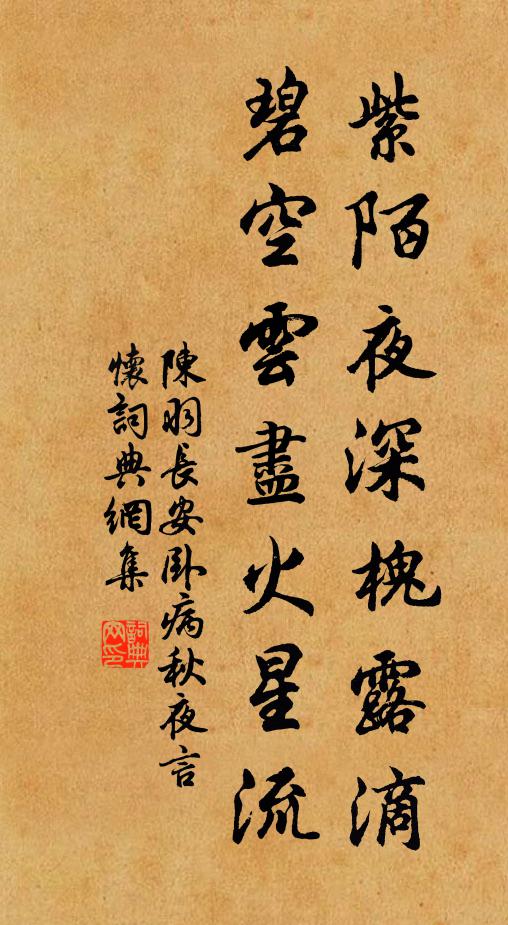 紫陌夜深槐露滴
碧空雲盡火星流
陳羽長安臥病秋夜言
懷詞典網集
詞典
网印